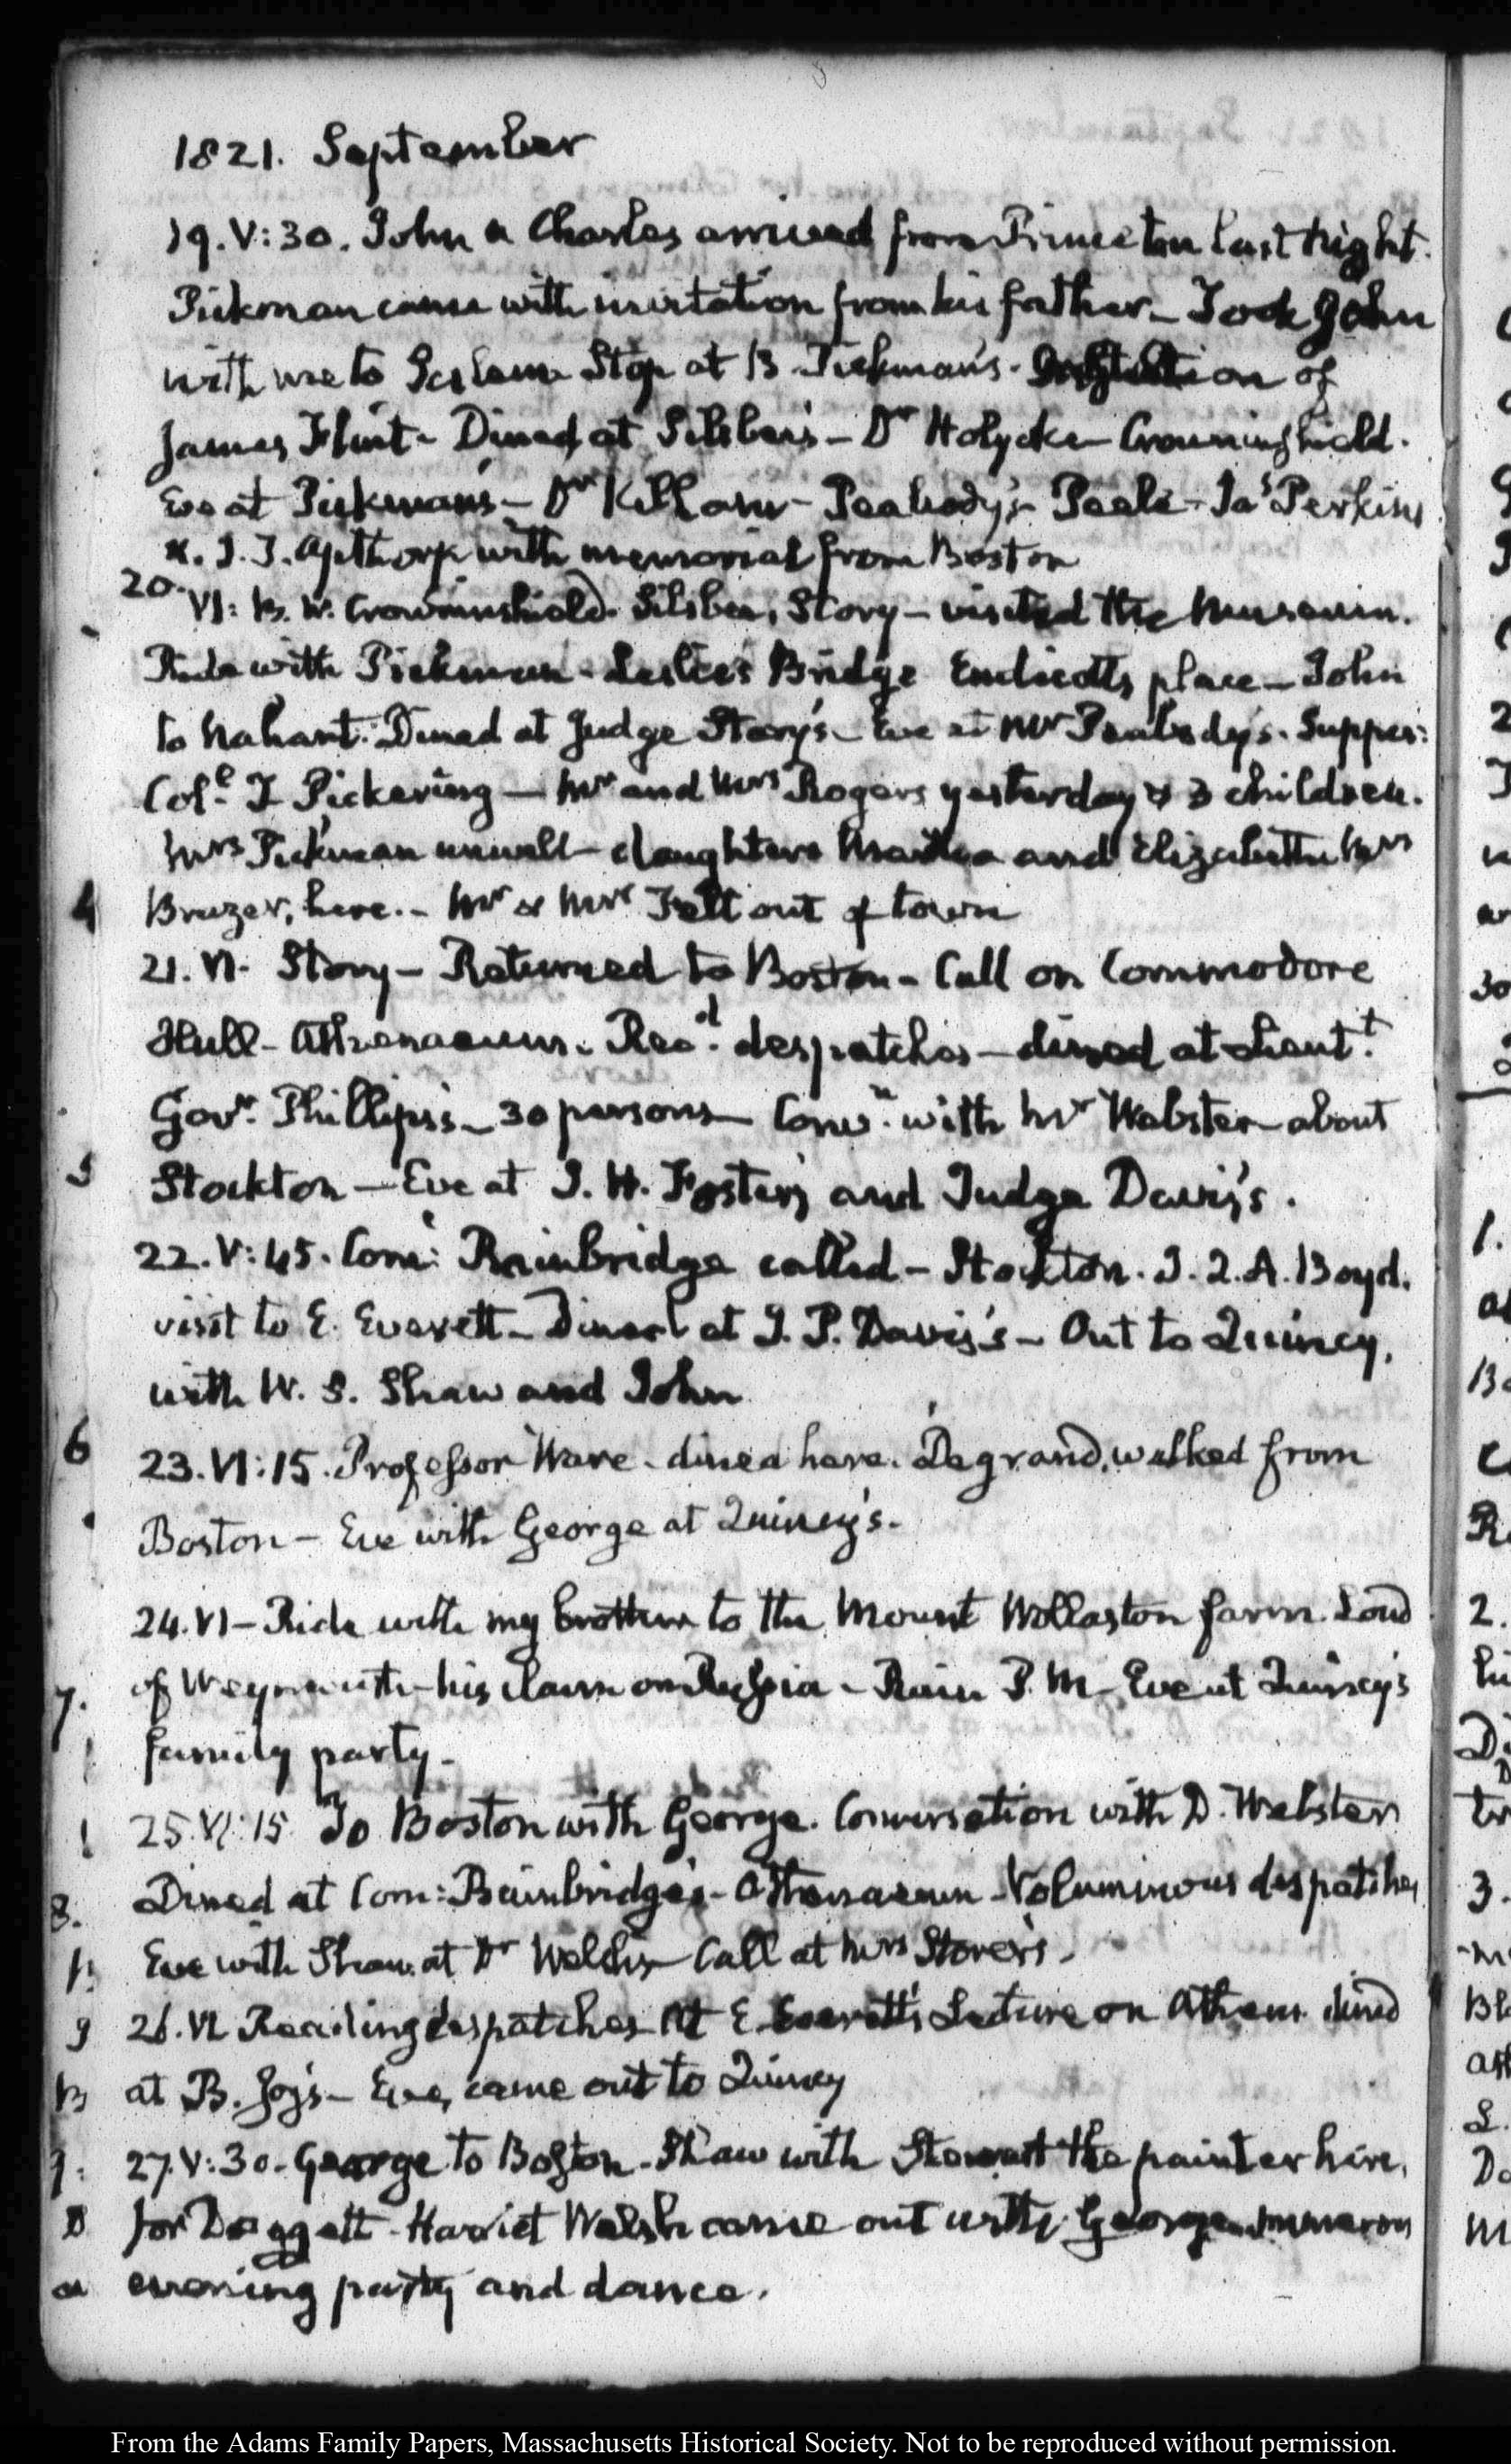 1821. September
19. V:30. John & Charles arrived from Princeton last Night.
Pickman came with invitation from his father_ Took John
with me to Salem Stop at B. Pickman's. of
James Flint- Dined at Silsbee's_ Dr Holyoke Crowninshield.
Eve at Pickman's_ Dr Kilham- Peabody's Peele- Jas Perkins
J. T. Apthorp with memorial from Boston
20. VI: B. W. Crowninshield. Silsbee, Story_ visited the Museum.
Ride with Pickman- Leslie's Bridge Endicotts place_ John
to Nahant. Dined at Judge Story's_ Eve at Mr Peabody's. Supper:
Col.e T Pickering_ Mr and Mrs Rogers yesterday & 3 children.
Mrs Pickman unwell_ daughters Martha and Elizabeth Mrs
4 Brazer, here._ Mr & Mrs Felt out of town
21. VI. Story_ Returned to Boston_ Call on Commodore
Hull_ Athenaeum. Rec.d despatches_ dined at Lieut.t
Govr. Phillips's_ 30 persons_ Conv.n with Mr Webster about
5 Stockton_ Eve at J. H. Foster's and Judge Davis's.
22. V:45. Com: Bainbridge called_ Stockton. J. Q. A. Boyd.
visit to E. Everett_ Dined at J. P. Davis's_ Out to Quincy,
with W. S. Shaw and John
6 23. VI:15. Professor Ware. dined here. Degrand, walked from
Boston_ Eve with George at Quincy's.
24. VI_ Ride with my brother to the Mount Wollaston farm. Loud
7. of Weymouth_ his claim on Russia_ Rain P.M_ Eve at Quincy's
family party_
25. VI:15. To Boston with George. Conversation with D. Webster
8. Dined at Com: Bainbridge's_ Athenaeum_ Voluminous despatches
Eve with Shaw at Dr Welsh's_ Call at Mrs Storer's_
9 26. VI. Reading despatches At E. Everett's Lecture on Athens dined
at B. Joy's_ Eve, came out to Quincy
27. V:30. George to Boston. Shaw with Stewart the painter here,
for Doggett. Harriet Welsh came out with George. numerous
evening party and dance.
From the Adams Family Papers, Massachusetts Historical Society. Not to be reproduced without permission.